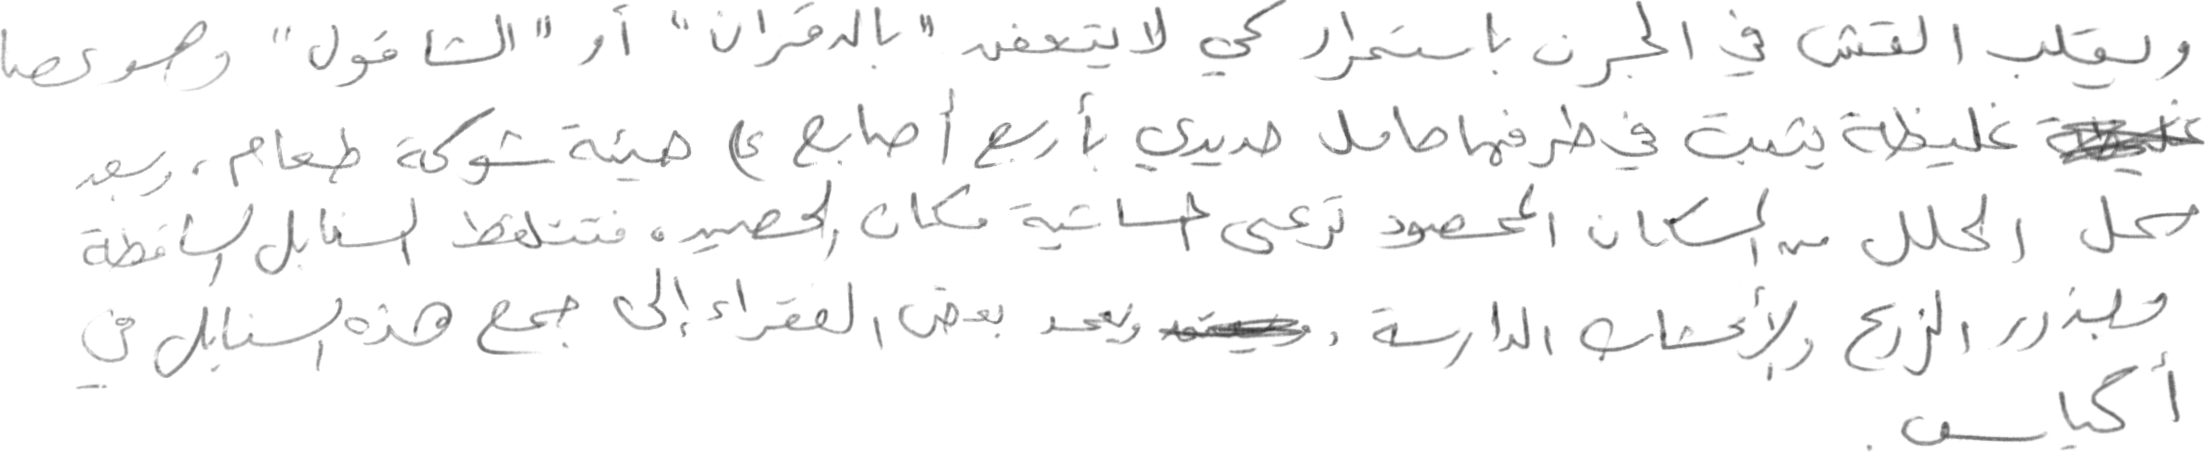 ويقلب القش في الجرن باستمرار كي لا يتعفن "بالدقران" أو "الشاقول" وهو عصا
غليظة يثبت في طرفها حامل حديدي بأربع أصابع على هيئة شوكة طعام، وبعد
حمل الحلل من المكان المحصود ترعى الماشية مكان الحصيد، فتلتقط السنابل الساقطة
وبذور الزرع والأعشاب الدارسة، ويعمد بعض الفقراء إلى جمع هذه السنابل في
أكياس.